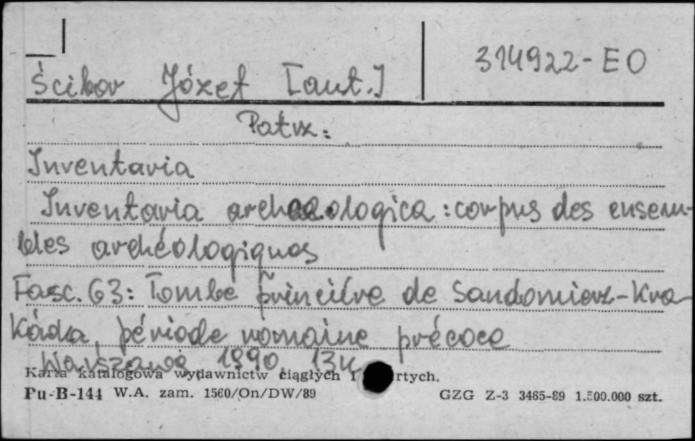 314922-EO
Ścibor Józef [aut.]
Patrz:
Inventaria
Inventaria archaeologica : corpus des ensem-
bles archéologiques
Fasc. 63: Tombe princière de Sandomierz-Kra-
kówka, période romaine précoce
Warszawa 1990, 13 k.
Karta katalogowa wydawnictw ciągłych i rtych.
Pu-B-144 W.A. zam. 1560/On/DW/89 GZG Z-3 3465-89 1.500.000 szt.